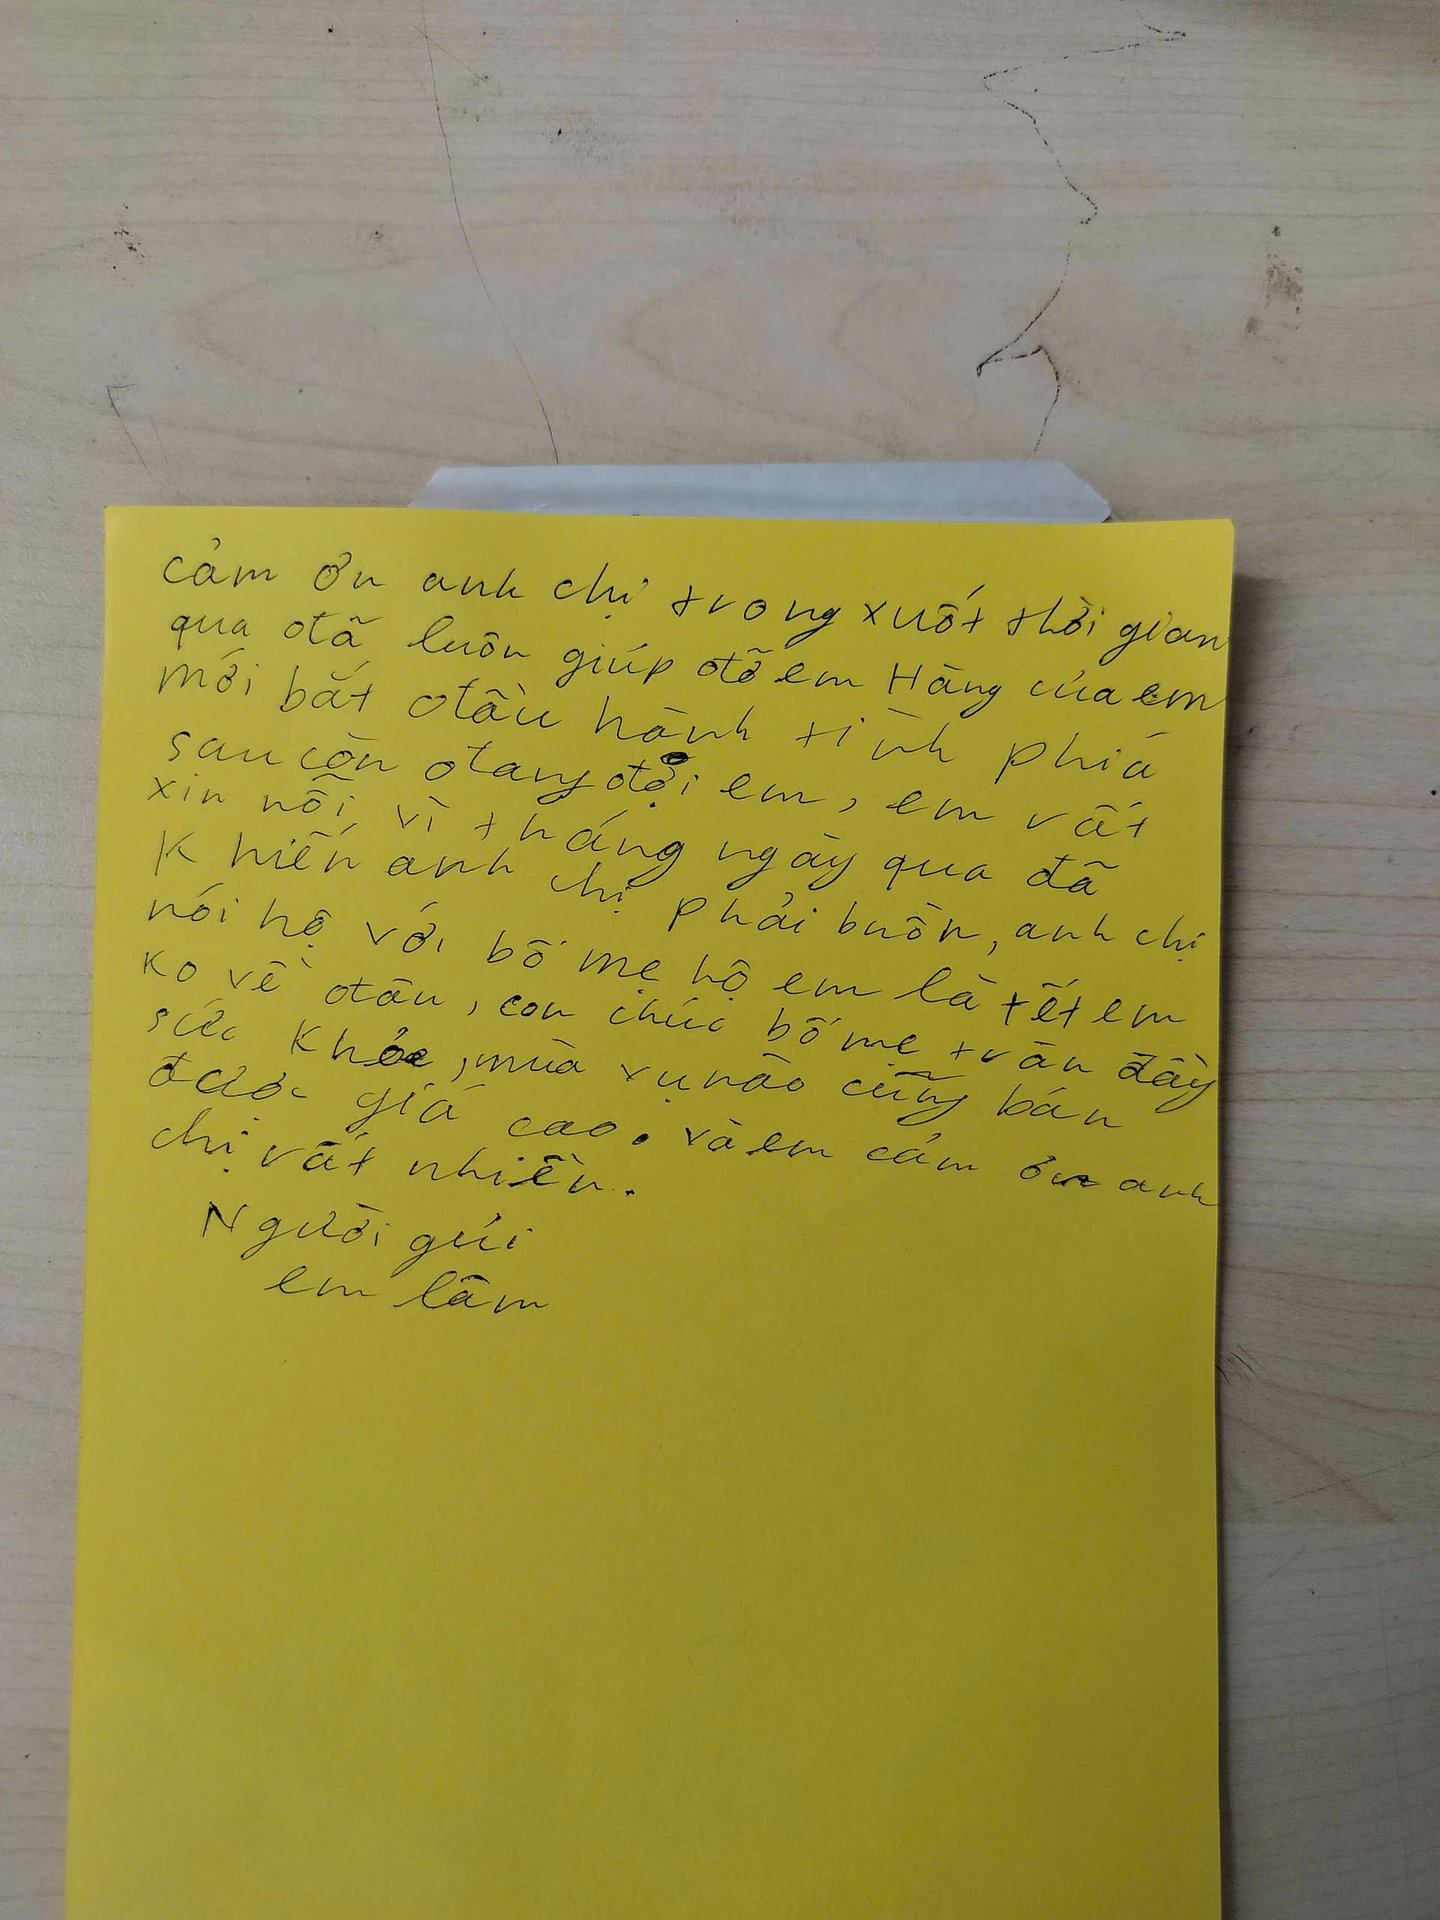 cảm ơn anh chị trong xuốt thời gian
qua đã luôn giúp đỡ em Hàng của em
mới bắt đầu hành tình phiá
sau còn đang đợi em, em vất
xin nỗi vì tháng ngày qua đã
Khiến anh chị phải buồn, anh chị
nói hộ với bố mẹ hộ em là tết em
Ko về đâu, con chúc bố mẹ trân đầy
sức khỏe, mùa vụ nào cũng bán
được giá cao. và em cảm ơn anh
chị vất nhiền.
Người gửi
em lâm